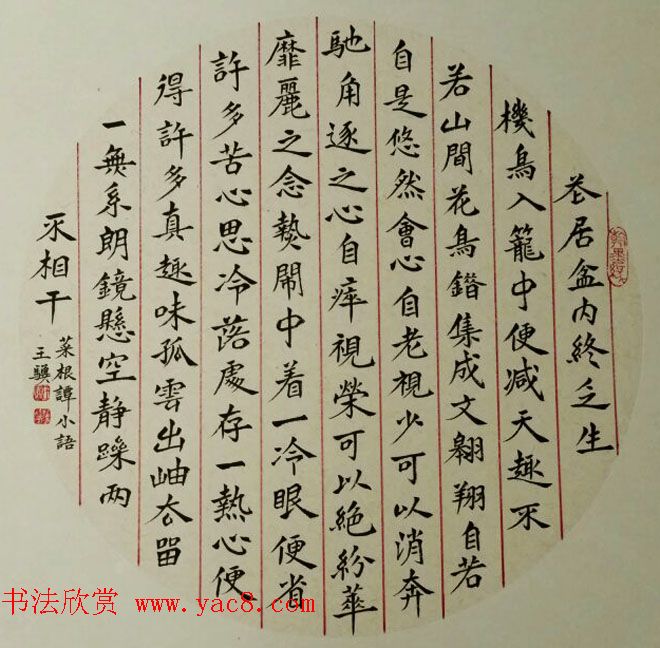 花居盆內終乏生
機鳥入籠中便减天趣不
若山間花鳥錯集成文翱翔自若
自是悠然會心自老視少可以消奔
馳角逐之心自瘁視榮可以絕紛華
靡麗之念熱鬧中着一冷眼便省
許多苦心思冷落處存一熱心便
得許多真趣味孤雲出岫去留
一無系朗鏡懸空静躁两
不相干
菜根譚小語
王驥
书法欣赏 www.yac8.com